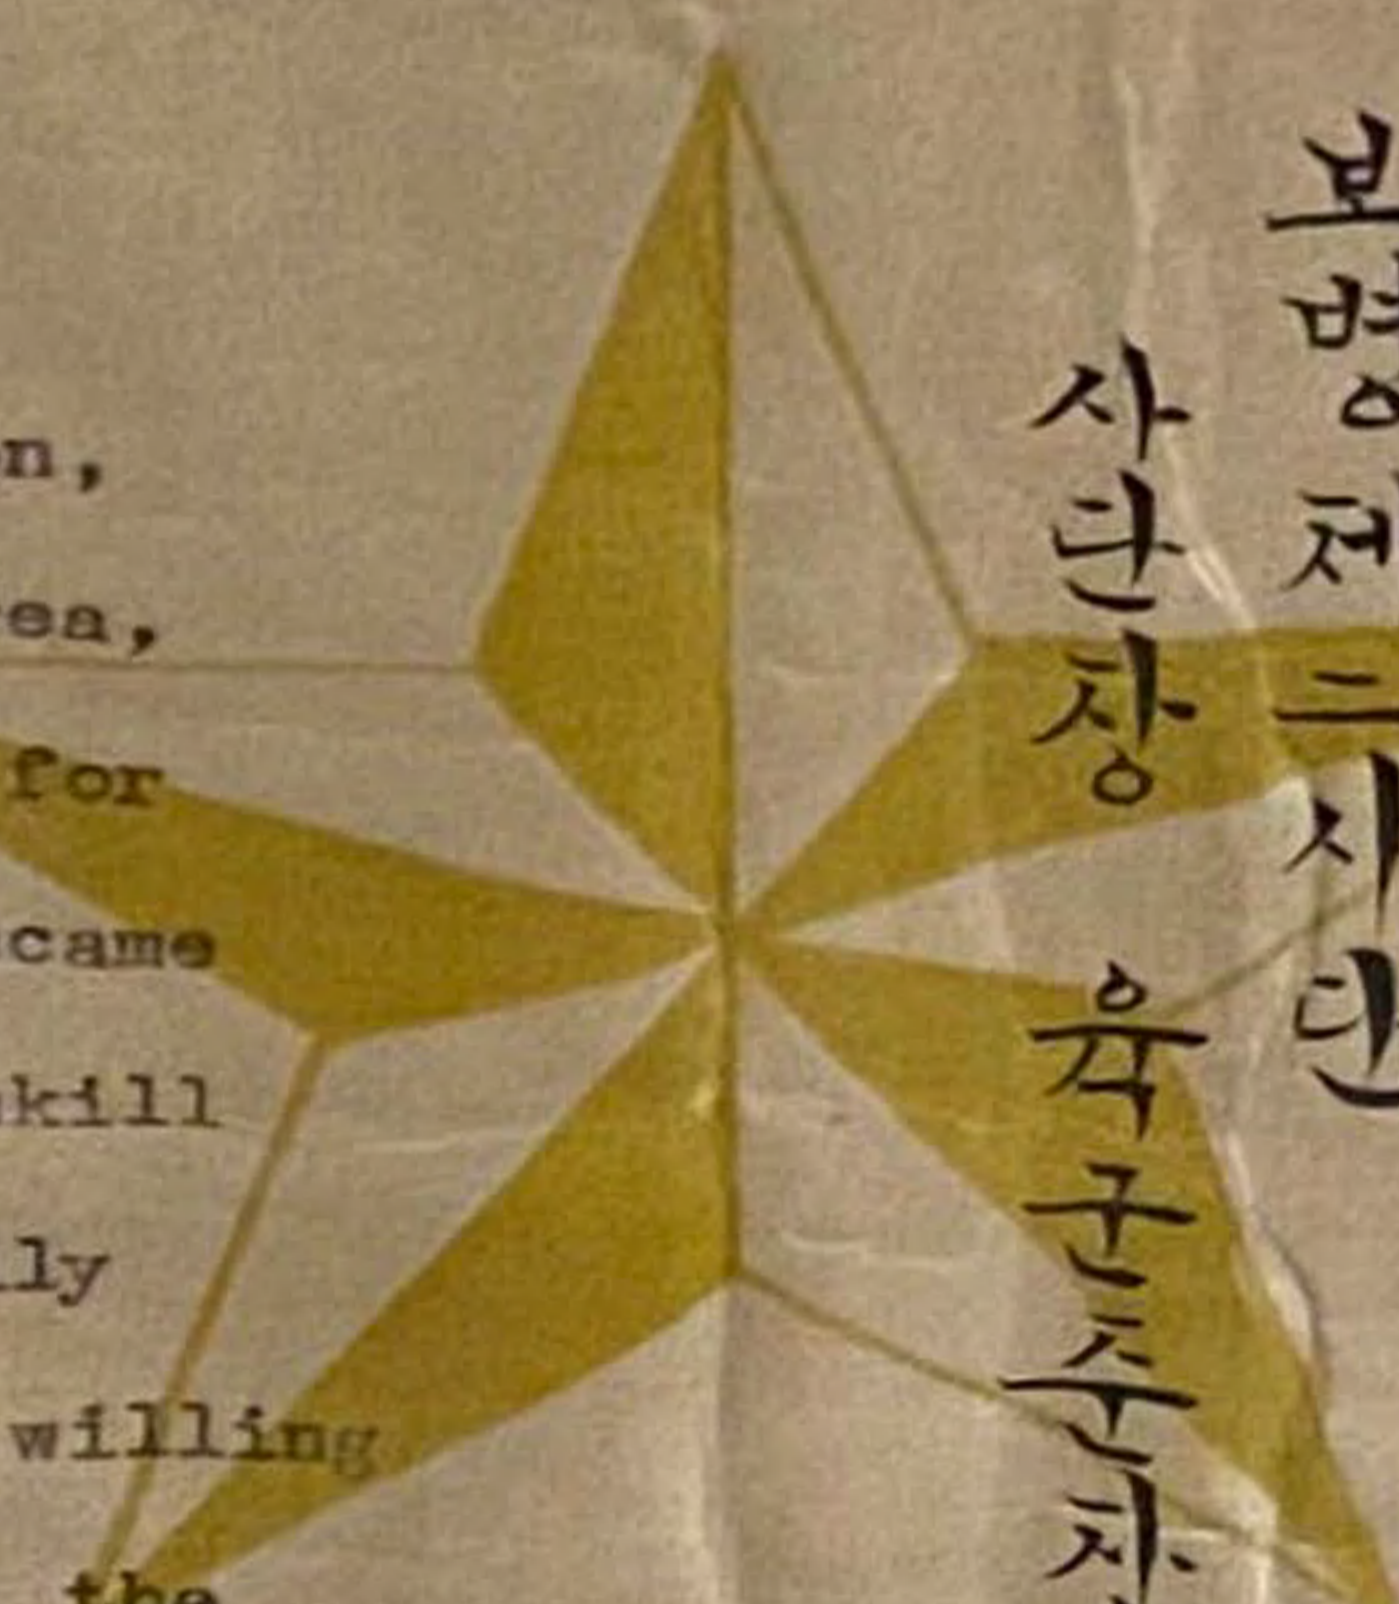 n,
ea,
for
came
kill
ly
willing
the
보병제二사단
사단장 육군준장